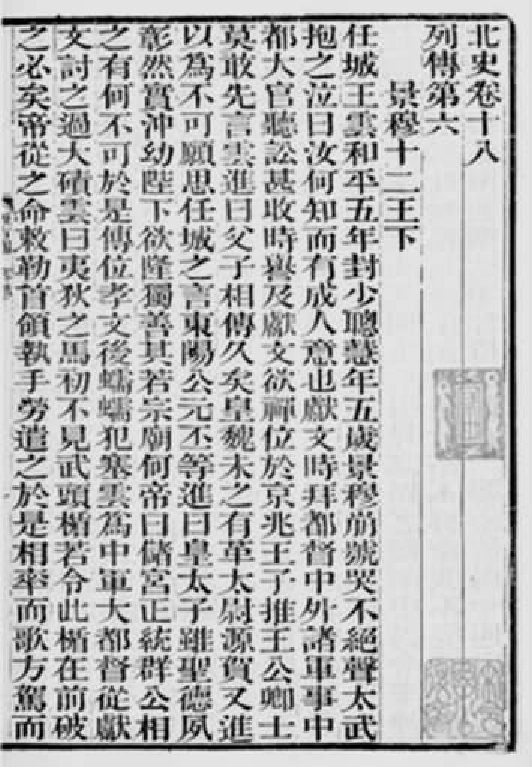 北史卷十八
列傳第六
景穆十二王下
任城王雲和平五年封少聰慧年五歲景穆崩號哭不絕聲太武
抱之泣曰汝何知而有成人意也獻文時拜都督中外諸軍事中
都大官聽訟甚收時譽及獻文欲禪位於京兆王子推王公卿士
莫敢先言雲進曰父子相傳久矣皇魏未之有革太尉源賀又進
以為不可願思任城之言東陽公元丕等進曰皇太子雖聖德夙
彰然實沖幼陛下欲隆獨善其若宗廟何帝曰儲宮正統群公相
之有何不可於是傳位孝文後蠕蠕犯塞雲為中軍大都督從獻
文討之過大磧雲曰夷狄之馬初不見武頭楯若令此楯在前破
之必矣帝從之命敕勒首領執手勞遣之於是相率而歌方駕而